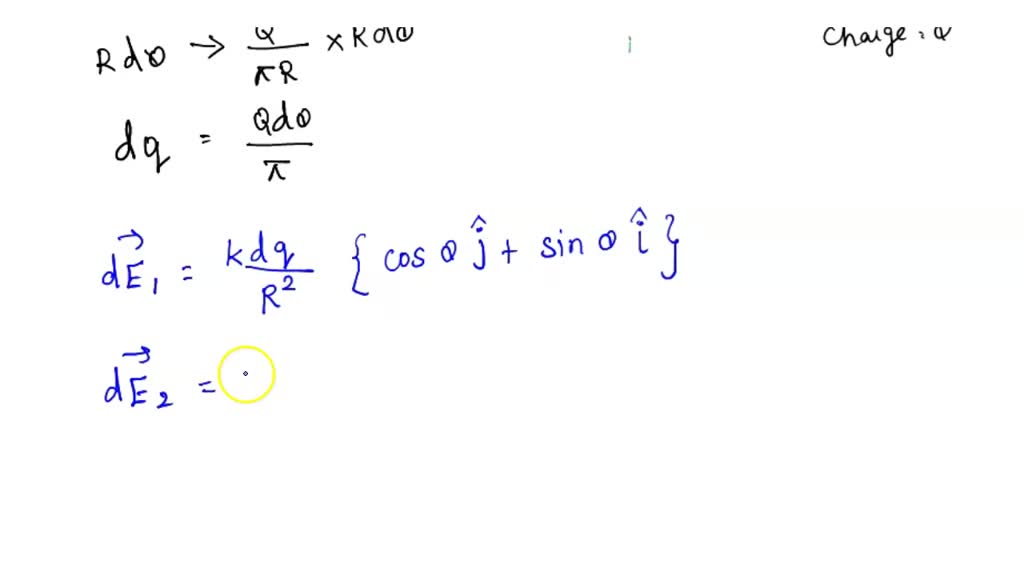 Rdθ → Q/πR × Rdθ
Charge = Q
dq = Qdθ/π
dE⃗₁ = kdq/R² {cos θ ĵ + sin θ î}
dE⃗₂ =